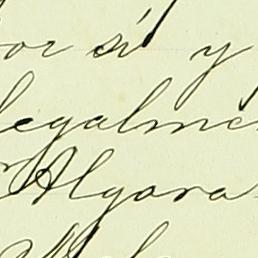 por sí y
legalme
Algara